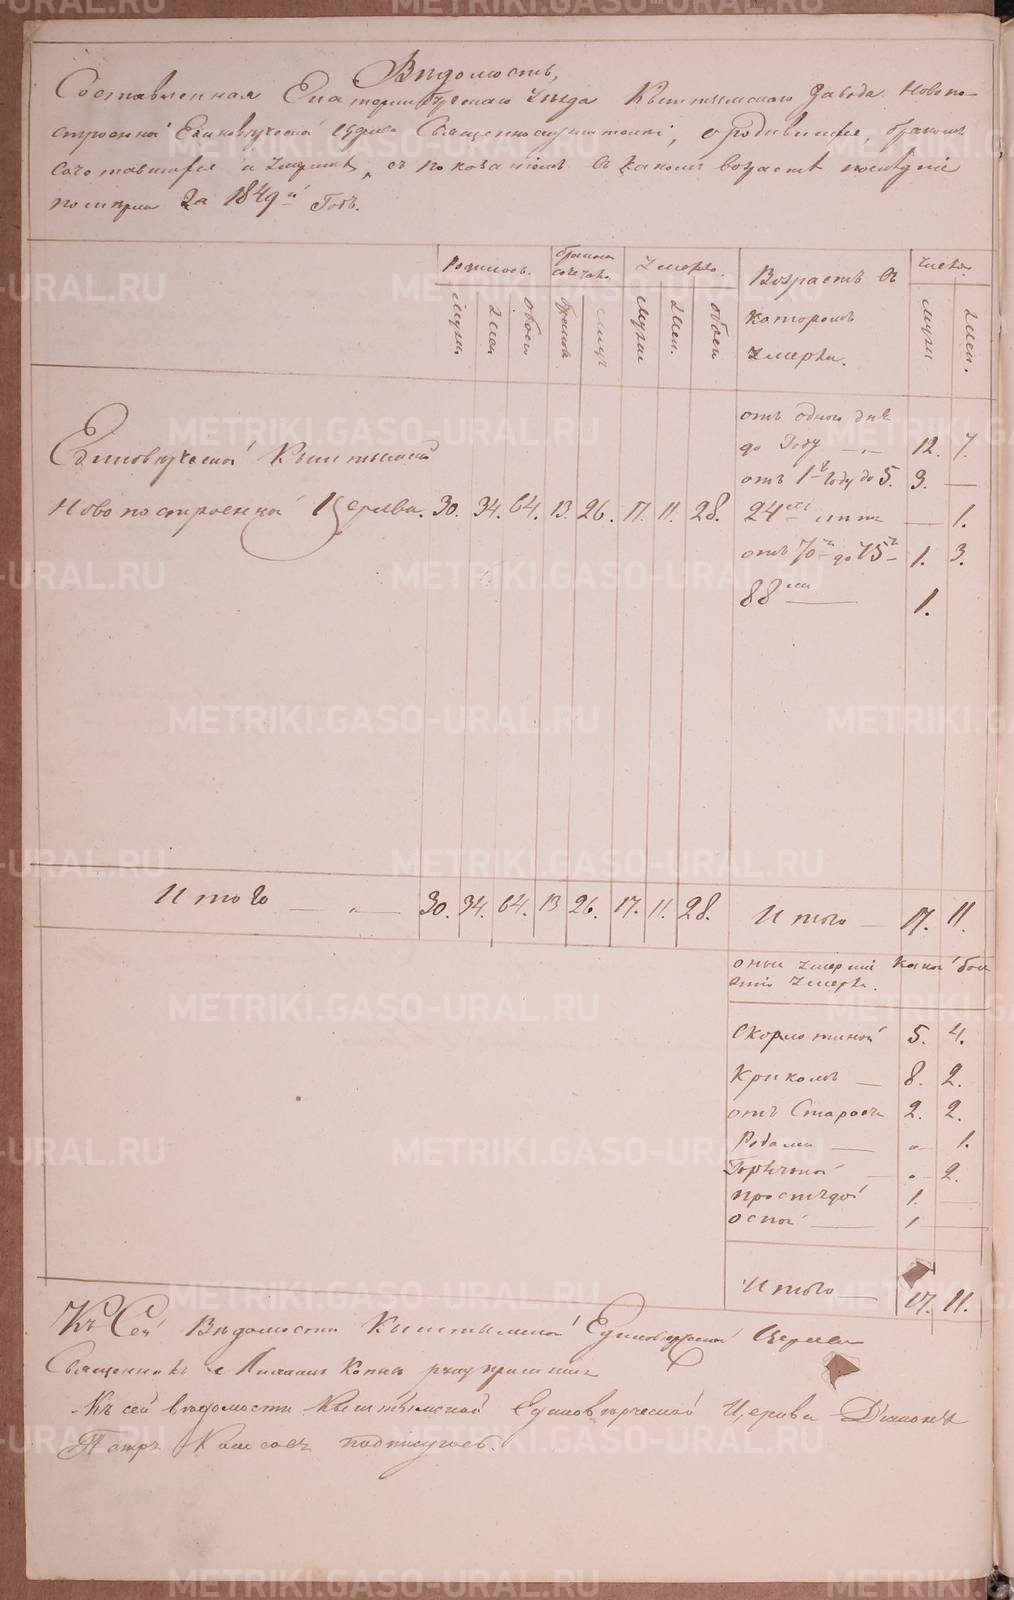 Ведомость,
Составленная Екатеринбургскаго Уезда Кыштымскаго Завода Новопо-
строенной Единоверческой Церкви Священнослужителями, о родившихся браком
сочетавшихся и умерших, с показанием в каком возрасте последние
померли За 1849й Годъ.
Родилось. браком сочетал. Умерло. Возрастъ въ котором Умерли. число.
мужи жен обоего браков лиц мужи жен. обоего мужи жен.
Единоверческой Кыштымской
Новопостроенной Церкви. 30. 34. 64. 13. 26. 17. 11. 28.
от одного дня
до Году 12. 7.
отъ 1го году до 5. 3. —
24 лет — 1.
отъ 70ти до 75ти 1. 3.
88 лет 1.
Итого — „ — 30. 34. 64. 13 26. 17. 11. 28. Итого — 17. 11.
оные умершие какой бол
Умерли.
Скорлотиной 5. 4.
Крикомъ — 8. 2.
отъ Старости 2. 2.
Родами — „ 1.
Горячкой — „ 2.
простудой 1. —
оспой — 1 —
Итого — 17. 11.
Къ Сей Ведомости Кыштымской Единоверческой Церкви
Священникъ руку приложил
Къ сей ведомости Кыштымской Единоверческой Церкви Дьячокъ
Петръ подписуюсь.
METRIKI.GASO-URAL.RU